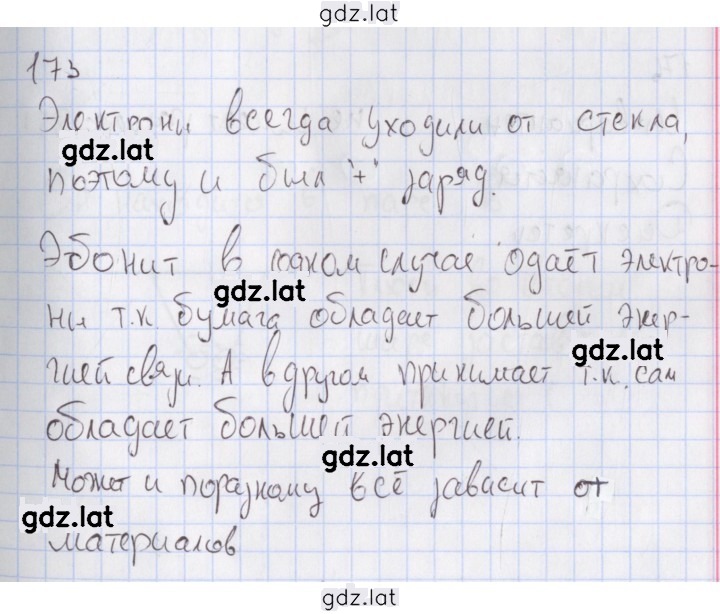 gdz.lat
173
Электроны всегда уходили от стекла,
gdz.lat
поэтому и был "+" заряд.
Эбонит в одном случае одаёт электро-
gdz.lat
ны т.к. бумага обладает большей энер-
gdz.lat
гией связи. А в другом принимает т.к. сам
обладает большей энергией.
gdz.lat
Может и поразному всё зависит от
gdz.lat
материалов
gdz.lat